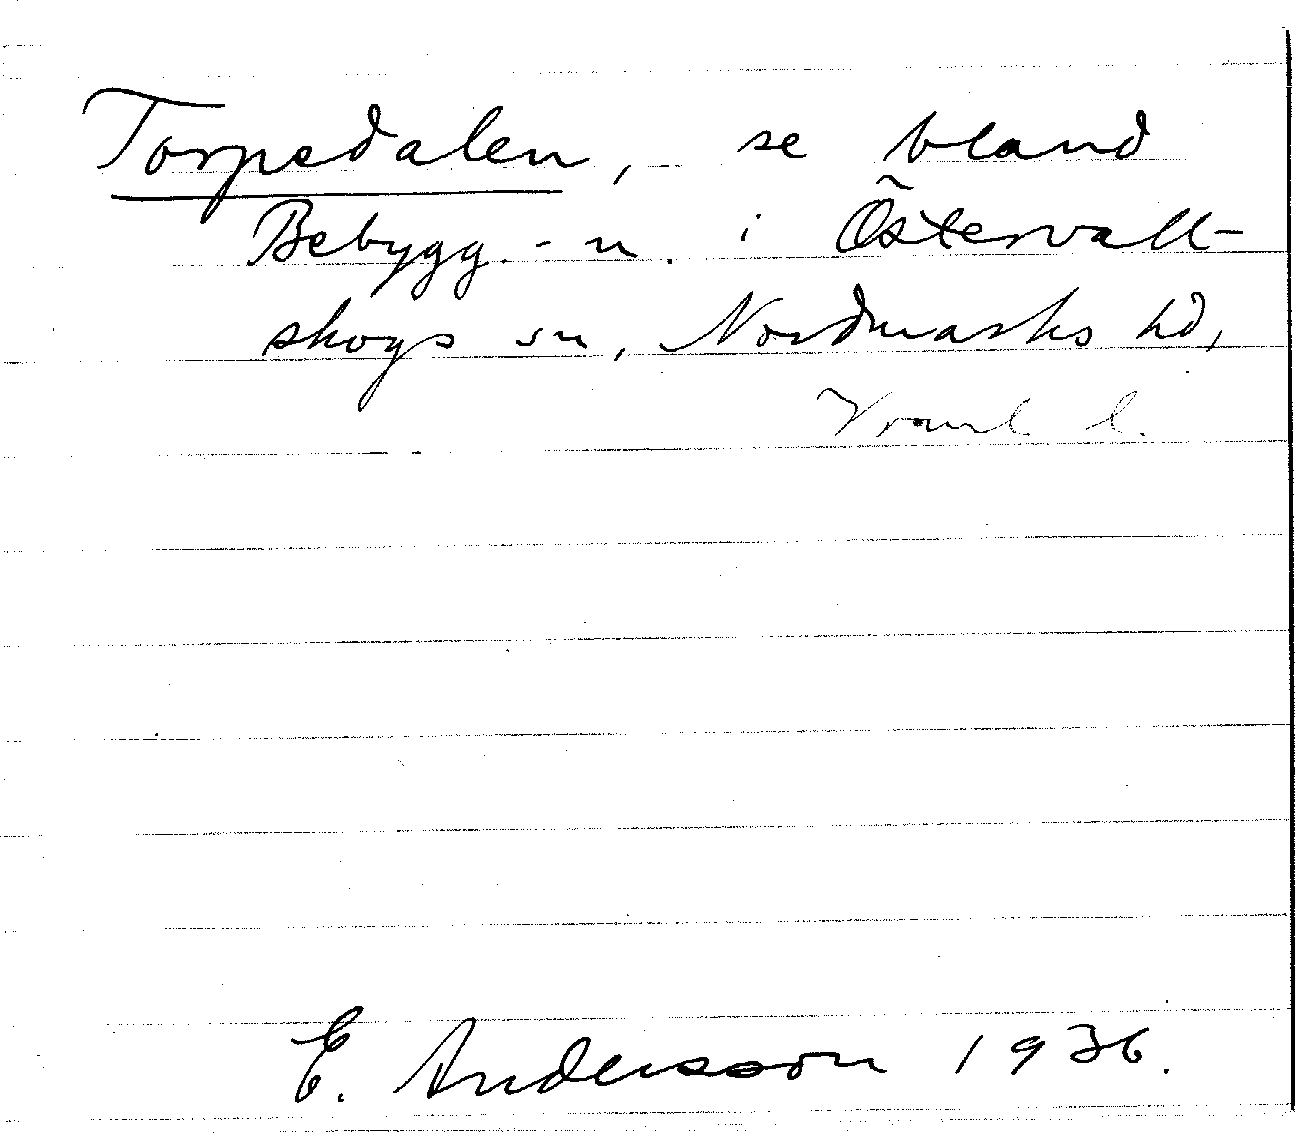 Torpedalen, se bland
Bebygg.-n. i Östervall-
skogs sn, Nordmarks hd,
Värml. l.
E. Andersson 1936.